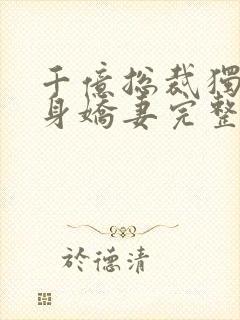 千億总裁獨
身嬌妻完整
於德清